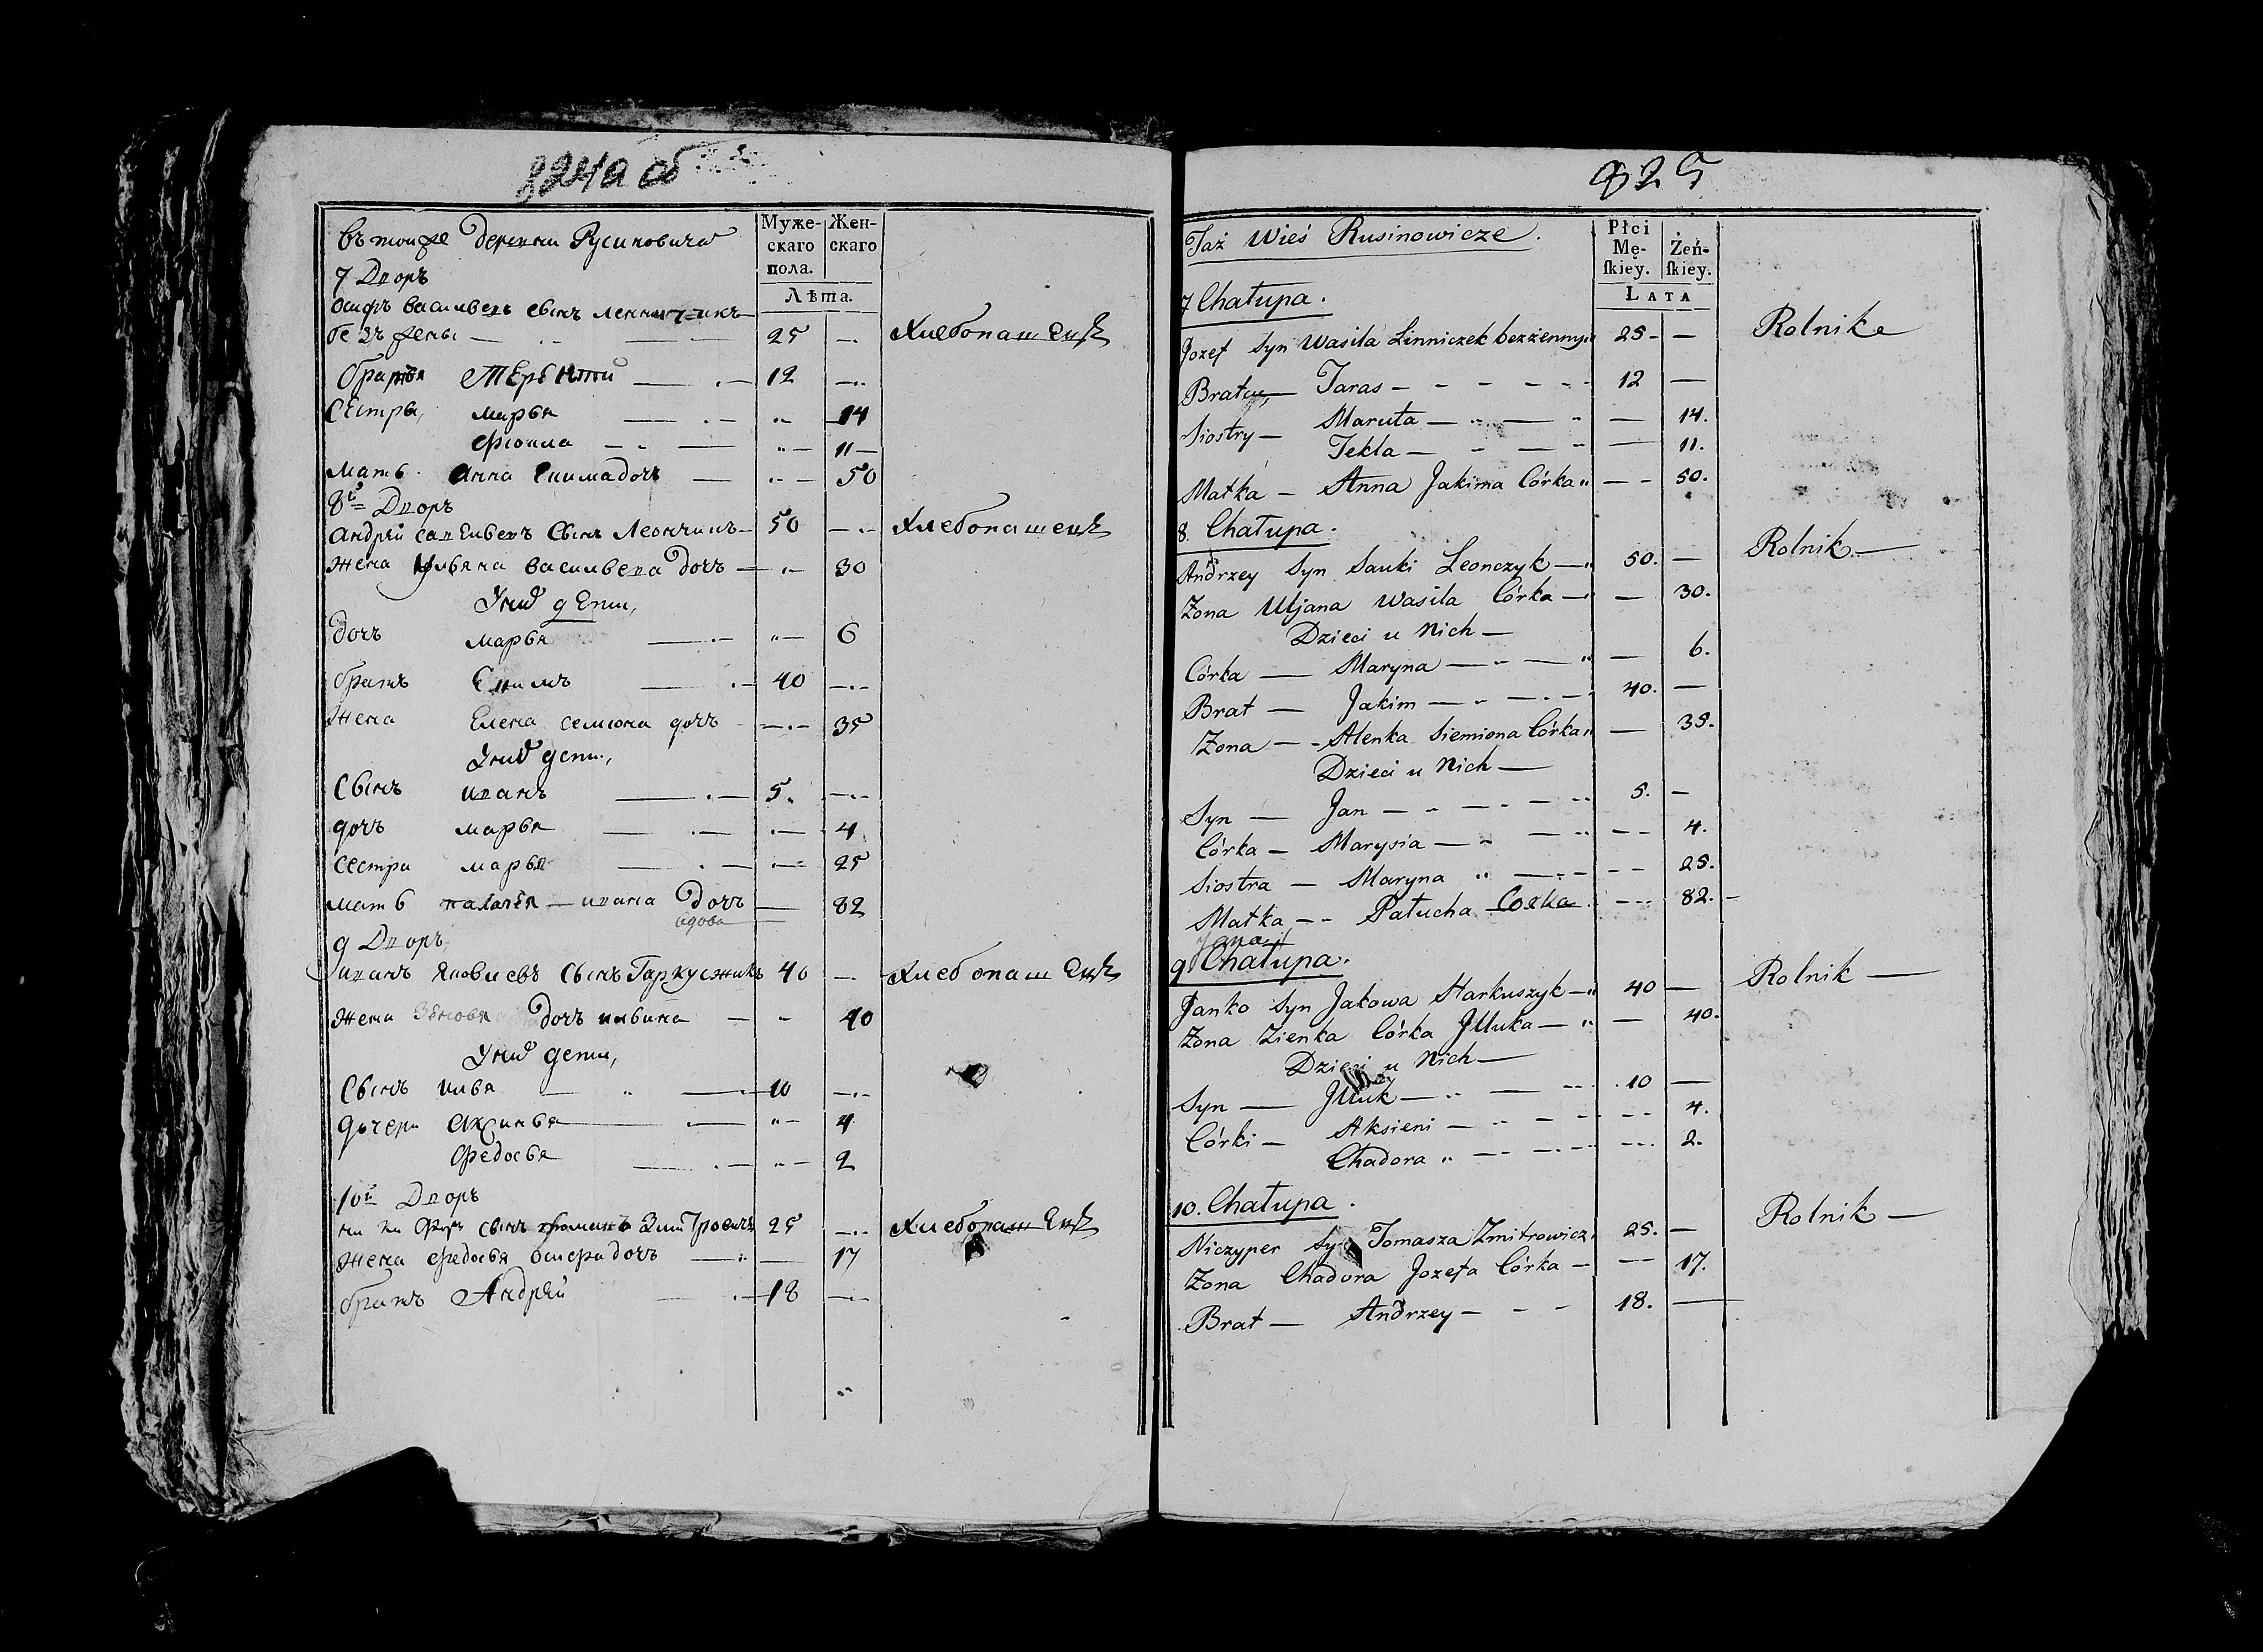 824а об
въ тойже деревни Русиновича
Муже-
скаго
пола.
Жен-
скаго
Лѣта.
7 Дворъ
Осифъ Васильевъ сынъ
безъ жены 25 — Хлебопашецъ
братья 12 —
Сестры марья — 14
11 —
мать Анна дочь — 50
8й Дворъ
Андрей сынъ Леончикъ 50 — Хлебопашецъ
Жена Ульяна Васильева дочь — 30
Униѣ дети,
дочь марья — 6
братъ 40 —
Жена Елена Семиона дочь — 35
Униѣ дети,
Сынъ иванъ 5. —
дочь марья — 4
сестра марья — 25
мать — ивана Дочь — 82
вдова
9 Дворъ
иванъ Яковлевъ Сынъ 40 — Хлебопашецъ
Жена Дочь — 40
Униѣ дети,
Сынъ илья 10 —
дочери Аксинья — 4
Федосья — 2
10й Дворъ
сынъ 25 — Хлебопашецъ
Жена Федосья Осифа дочь — 17
братъ Андрей 18 —
825
Taż Wieś Rusinowicze.
Płci
Mę-
ſkiey.
Żeń-
ſkiey.
Lata
7 Chałupa.
Jozef Syn Wasila Linniczek bezżenny 25 — Rolnik
Taras — 12 —
Siostry — Maruta — 14.
Tekla — 11.
Matka — Anna Jakima Córka — 50.
8. Chałupa.
Andrzey Syn Sauki Leonczyk — 50. — Rolnik —
Zona Uljana Wasila Córka — 30.
Dzieci u Nich —
Córka — Maryna — 6.
Brat — Jakim — 40. —
Zona — Alenka Siemiona Córka — 35.
Dzieci u Nich —
Syn — Jan — 5. —
Córka — Marysia — 4.
Siostra — Maryna — 25.
Matka — Pałucha Corka — 82. —
Jana
9. Chałupa.
Janko Syn Jakowa Harkuszyk — 40 — Rolnik —
Zona Zienka Córka — 40.
Dzieci u Nich —
Syn — 10 —
Córki — Aksieni — 4.
Chadora — 2.
10. Chałupa.
Niczyper Syn Tomasza Zmitrowicz 25. — Rolnik —
Zona Chadora Jozefa Córka — 17.
Brat — Andrzey — 18. —